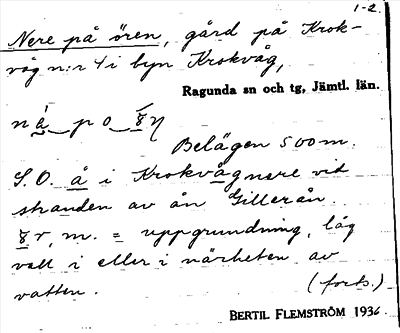 1-2.
Nere på ören, gård på Krok-
våg n:r 4 i byn Krokvåg,
Ragunda sn och tg, Jämtl. län.
Belägen 500 m.
S.O. å i Krokvåg nere vid
stranden av ån Gillerån.
m. = uppgrundning, låg
vall i eller i närheten av
vatten. (forts.)
BERTIL FLEMSTRÖM 1936